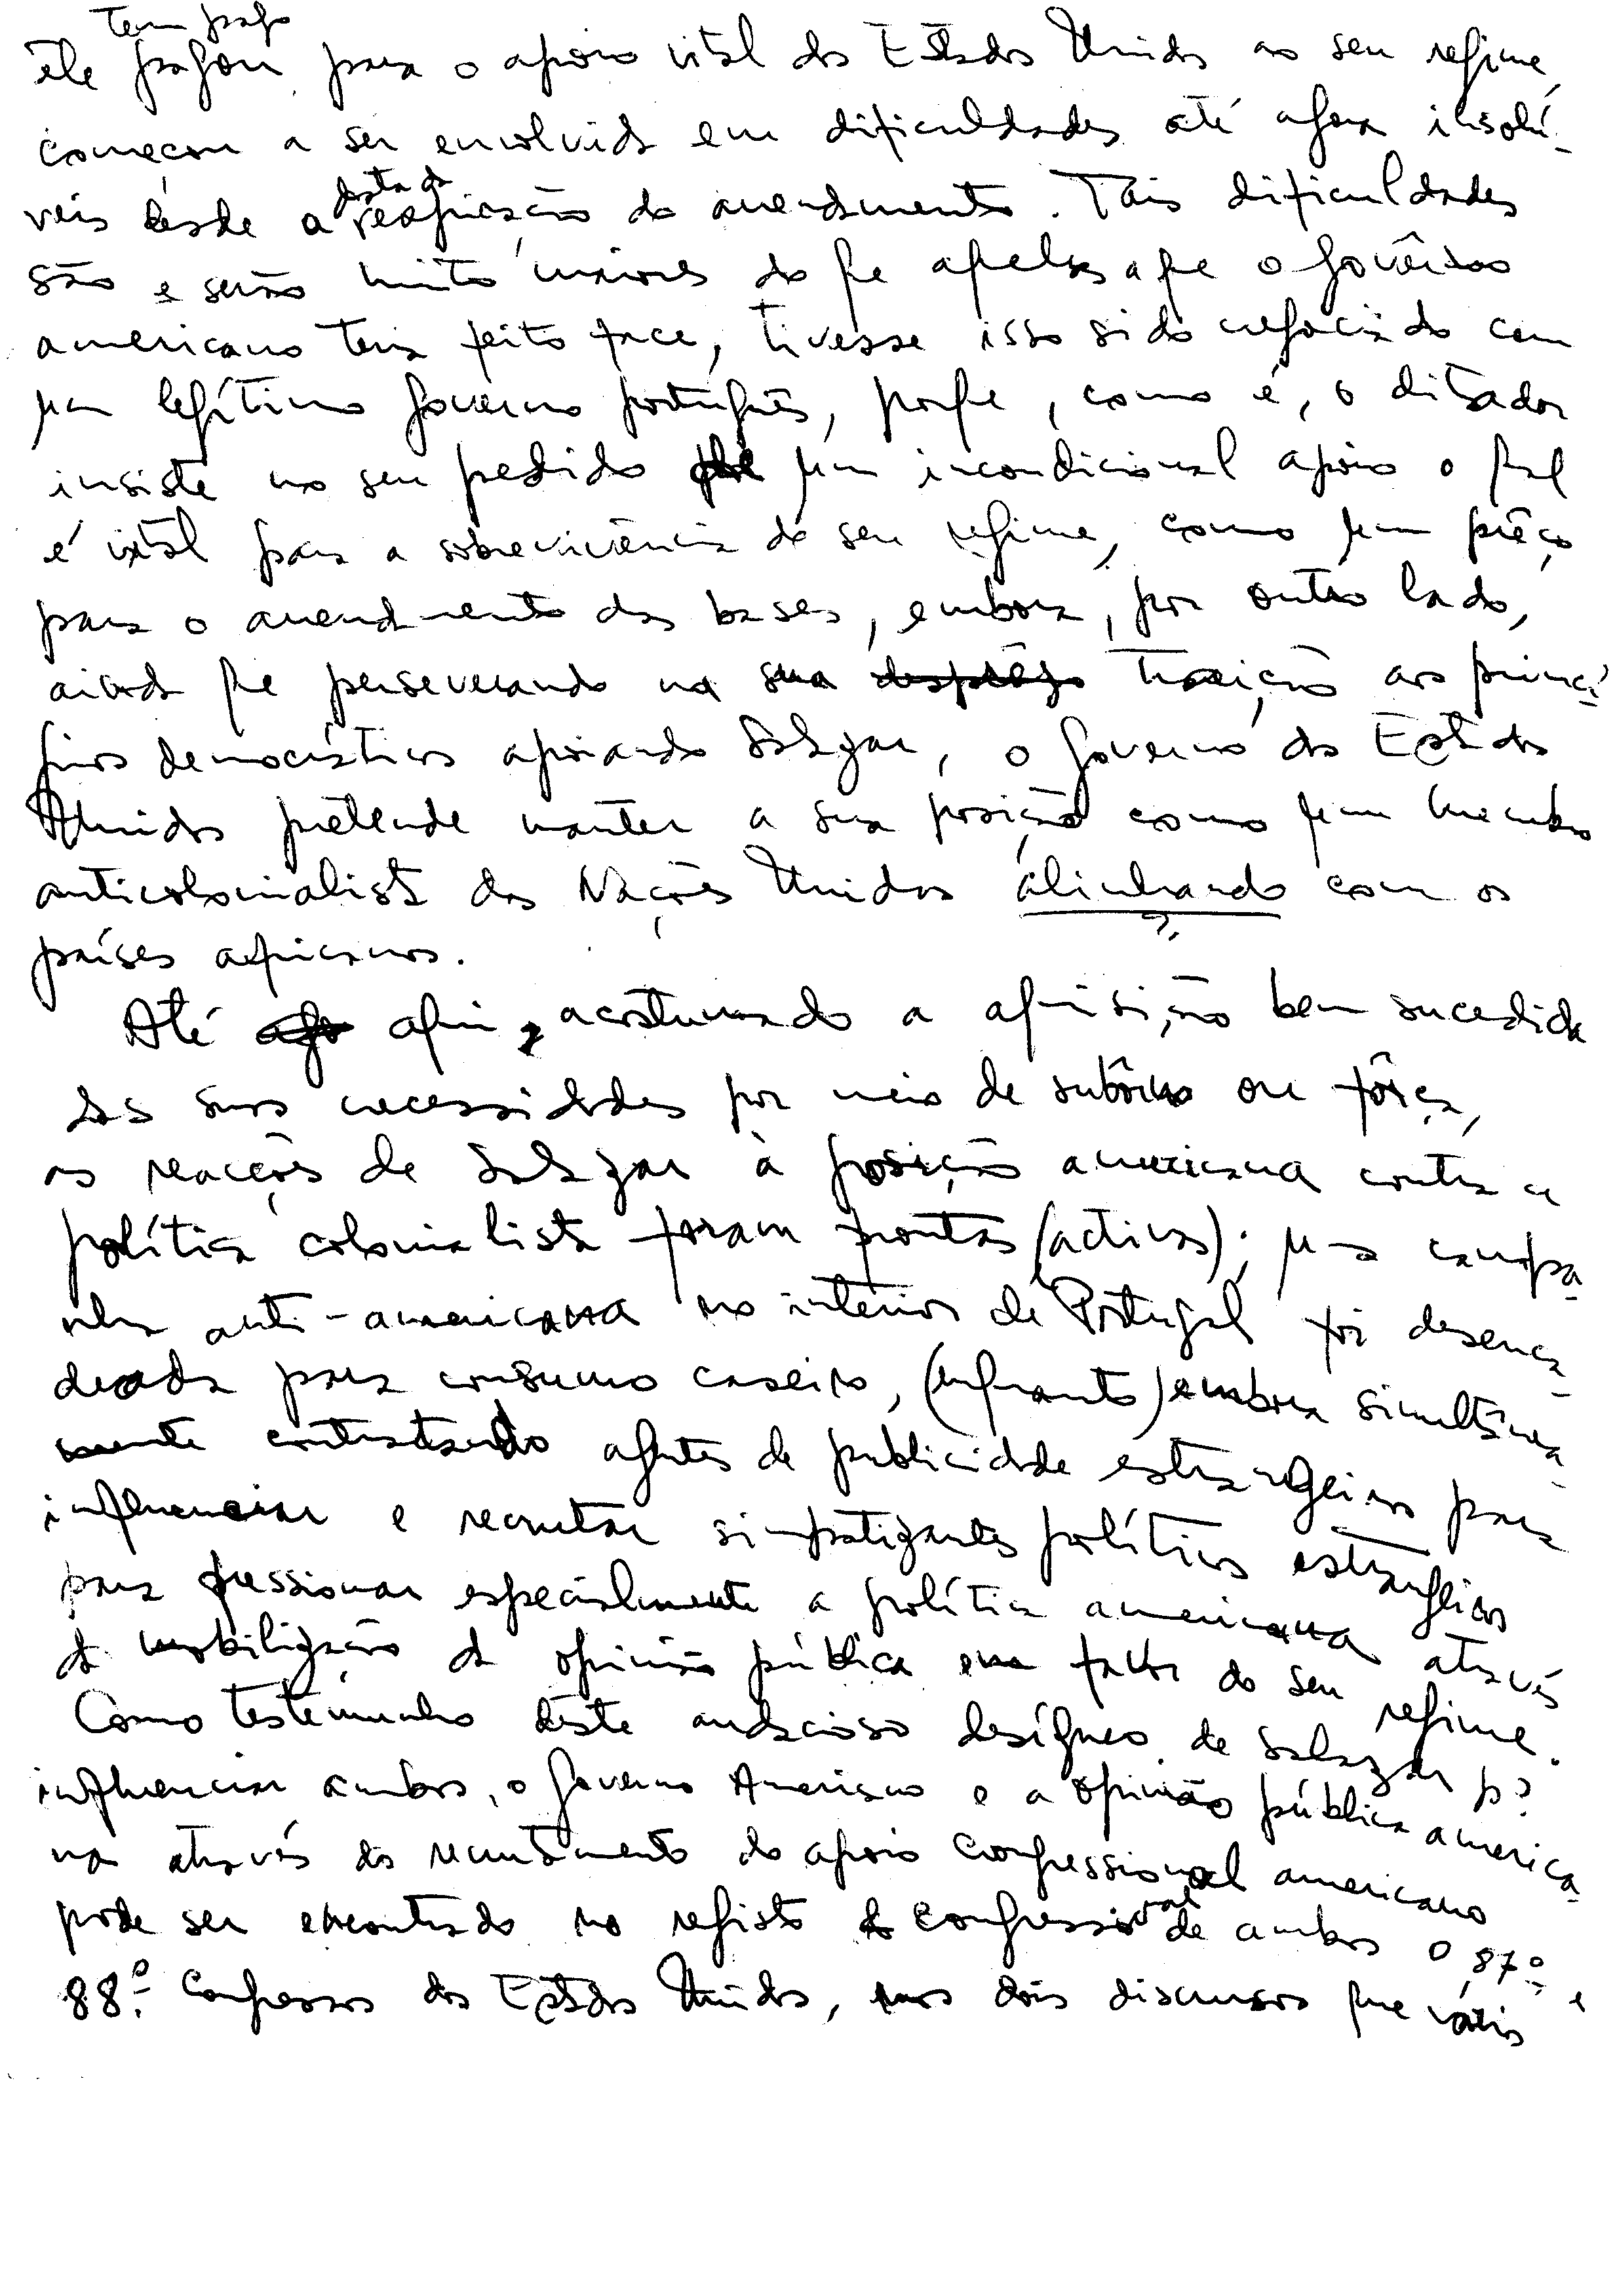 tem pago
êle pagou para o apoio vital dos Estados Unidos ao seu regime,
começou a ser envolvido em dificuldades até agora insolú-
veis desde a data da reaquisição do arrendamento. Tais dificuldades
são e serão muito maiores do que aquelas a que o govêrno
americano teria feito face, tivesse isso sido negociado com
um legítimo governo português, porque, como é, o ditador
insiste no seu pedido de um incondicional apoio o qual
é vital para a sobrevivência do seu regime, como um prêço
para o arrendamento das bases, embora, por outro lado,
ainda que perseverando na sua traição aos princí-
pios democráticos apoiando Salazar, o governo dos Estados
Unidos pretende manter a sua posição como um membro
anticolonialista das Nações Unidas alinhando com os
?
países africanos.
Até aqui, acostumado a aquisição bem sucedida
das suas necessidades por meio de subôrno ou fôrça,
as reacções de Salazar à posição americana contra a
política colonialista foram prontas (activas); uma campa-
nha anti-americana no interior de Portugal foi desenca-
deada para consumo caseiro, (enquanto) embora simultânea-
mente contratando agentes de publicidade estrangeiros para
influenciar e recrutar simpatizantes políticos estrangeiros
para pressionar especialmente a política americana através
da mobilização da opinião pública em favor do seu regime.
Como testemunho dêste audacioso desígneo de Salazar pª
influenciar ambos, o governo Americano e a opinião pública america-
na através do recrutamento do apoio congressional americano
pode ser encontrado no registo congressional de ambos o 87º e
88º Congressos dos Estados Unidos, nos dois discursos que vários